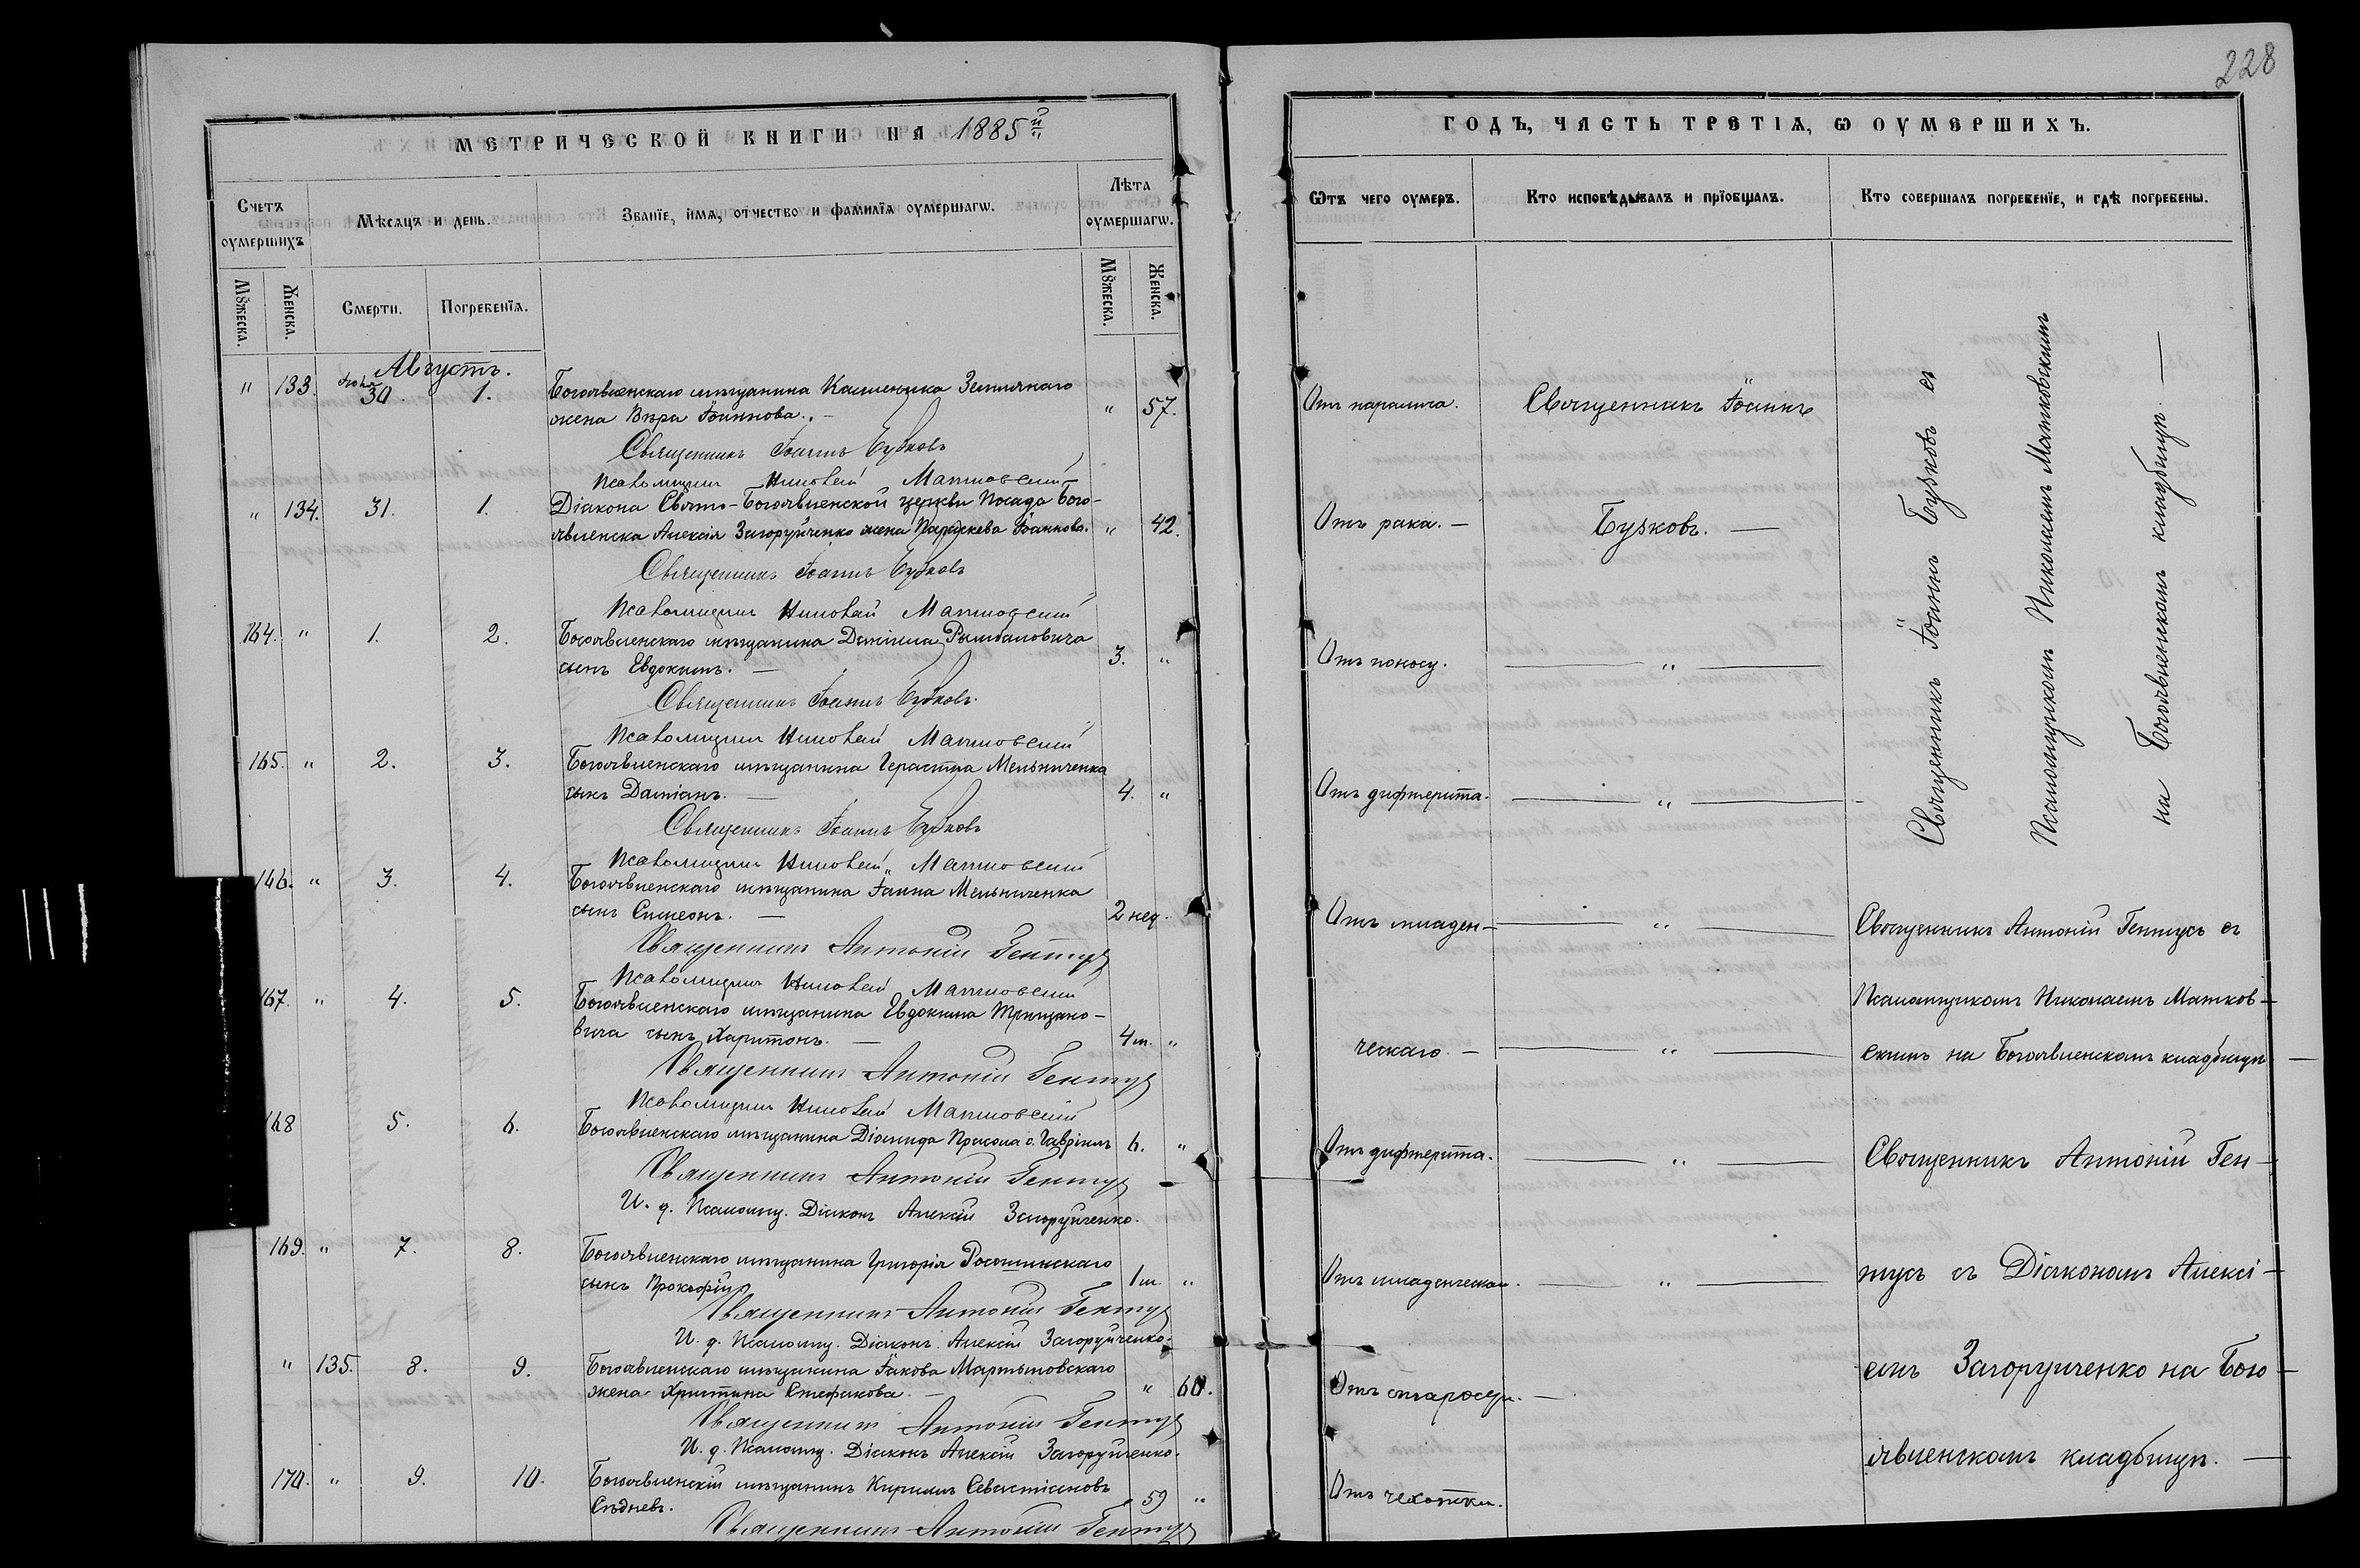 228
МЕТРИЧЕСКОЙ КНИГИ НА 1885й
Счетъ оумершихъ
Мѣсяцъ и день.
Званїе, имя, отчество и фамилїя оумершагѡ.
Лѣта оумершагѡ.
Мꙋжеска.
Женска.
Смерти.
Погребенїя.
Мꙋжеска.
Женска.
Августъ.
" 133. Іюля 30. 1. Богоявленскаго мѣщанина
жена Вѣра Іоаннова. " 57.
Священникъ Іоаннъ Бузковъ
Псаломщикъ Николай Матковскій
" 134. 31. 1. Діакона Свято-Богоявленской церкви Посада Бого-
явленска Алексія Загоруйченко жена Параскева Іоаннова. " 42.
Священникъ Іоаннъ Бузковъ
Псаломщикъ Николай Матковскій
164. " 1. 2. Богоявленскаго мѣщанина Даніила
сынъ Евдокимъ. — 3. "
Священникъ Іоаннъ Бузковъ
Псаломщикъ Николай Матковскій
165. " 2. 3. Богоявленскаго мѣщанина Мельниченка
сынъ Даміанъ. — 4. "
Священникъ Іоаннъ Бузковъ
Псаломщикъ Николай Матковскій
166. " 3. 4. Богоявленскаго мѣщанина Іоанна Мельниченка
сынъ Симеонъ. — 2 нед.
Священникъ Антоній Гентусъ
Псаломщикъ Николай Матковскій
167. " 4. 5. Богоявленскаго мѣщанина Евдокима
вича сынъ Харитонъ. — 4 м. "
Священникъ Антоній Гентусъ
Псаломщикъ Николай Матковскій
168 5. 6. Богоявленскаго мѣщанина Діомида Прасола с. Гавріилъ 6. "
Священникъ Антоній Гентусъ
И. д. Псаломщ. Діаконъ Алексій Загоруйченко.
169. " 7. 8. Богоявленскаго мѣщанина Григорія
сынъ Прокофій 1 м. "
Священникъ Антоній Гентусъ
И. д. Псаломщ. Діаконъ Алексій Загоруйченко.
" 135. 8. 9. Богоявленскаго мѣщанина Іакова Мартыновскаго
жена Христина Стефанова. — " 60.
Священникъ Антоній Гентусъ
И. д. Псаломщ. Діаконъ Алексій Загоруйченко.
170. " 9. 10. Богоявленскій мѣщанинъ Кириллъ Севастіановъ
59 "
Священникъ Антоній Гентусъ
ГОДЪ, ЧАСТЬ ТРЕТІЯ, Ѡ ОУМЕРШИХЪ.
Ѿтъ чего оумеръ.
Кто исповѣдывалъ и прїобщалъ.
Кто совершалъ погребенїе, и гдѣ погребены.
Отъ паралича. Священникъ Іоаннъ
Отъ рака. — Бузковъ. —
Отъ поносу. — " —
Отъ дифтерита. — " —
Священникъ Іоаннъ Бузковъ съ
Псаломщикомъ Николаемъ Матковскимъ
на Богоявленскомъ кладбищѣ. —
Отъ младен- — " — Священникъ Антоній Гентусъ съ
Псаломщикомъ Николаемъ Матков-
ческаго. — — " — скимъ на Богоявленскомъ кладбищѣ —
Отъ дифтерита. — " — Священникъ Антоній Ген-
Отъ младенческой. — " — тусъ съ Діакономъ Алексі-
емъ Загоруйченко на Бого-
Отъ старости. —
явленскомъ кладбищѣ. —
Отъ чахотки.